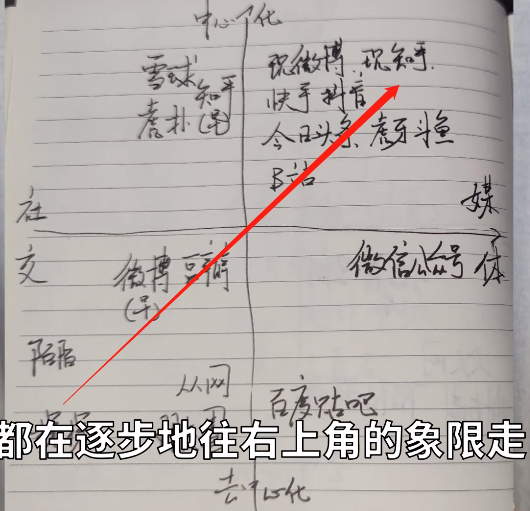 中心化
雪球 知乎(早)
虎扑
现微博、现知乎
快手 抖音
今日头条、虎牙斗鱼
B站
社交
媒体
微博(早) 豆瓣
微信公众号
陌陌
人人网
百度贴吧
都在逐步地往右上角的象限走
去中心化